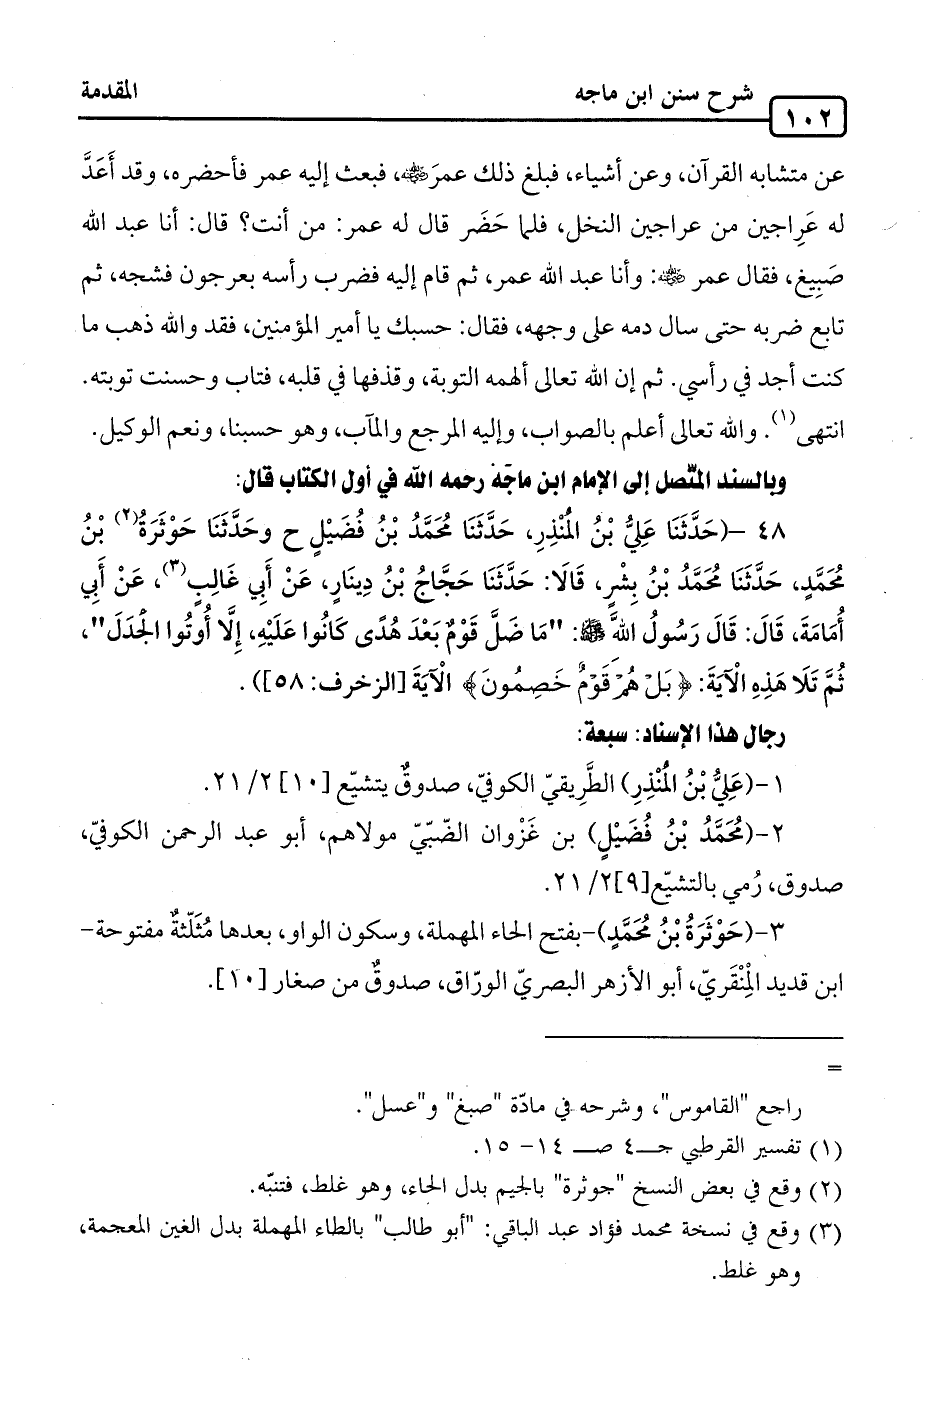 شرح سنن ابن ماجه
المقدمة
١٠٢
عن متشابه القرآن، وعن أشياء، فبلغ ذلك عمرَ رضي الله عنه، فبعث إليه عمر فأحضره، وقد أَعَدَّ
له عَرِاجين من عراجين النخل، فلما حَضَر قال له عمر: من أنت؟ قال: أنا عبد الله
صَبِيغ، فقال عمر رضي الله عنه: وأنا عبد الله عمر، ثم قام إليه فضرب رأسه بعرجون فشجه، ثم
تابع ضربه حتى سال دمه على وجهه، فقال: حسبك يا أمير المؤمنين، فقد والله ذهب ما
كنت أجد في رأسي. ثم إن الله تعالى ألهمه التوبة، وقذفها في قلبه، فتاب وحسنت توبته.
انتهى(١). والله تعالى أعلم بالصواب، وإليه المرجع والمآب، وهو حسبنا، ونعم الوكيل.
وبالسند المتّصل إلى الإمام ابن ماجَهْ رحمه الله في أول الكتاب قال:
٤٨ –(حَدَّثَنَا عَلِيُّ بْنُ الْمُنْذِرِ، حَدَّثَنَا مُحَمَّدُ بْنُ فُضَيْلٍ ح وحَدَّثَنَا حَوْثَرَةُ(٢) بْنُ
مُحَمَّدٍ، حَدَّثَنَا مُحَمَّدُ بْنُ بِشْرٍ، قَالَا: حَدَّثَنَا حَجَّاجُ بْنُ دِينَارٍ، عَنْ أَبِي غَالِبٍ(٣)، عَنْ أَبِي
أُمَامَةَ، قَالَ: قَالَ رَسُولُ اللهِ ﷺ: "مَا ضَلَّ قَوْمٌ بَعْدَ هُدًى كَانُوا عَلَيْهِ، إِلَّا أُوتُوا الْجَدَلَ"،
ثُمَّ تَلَا هَذِهِ الْآيَةَ: ﴿بَلْ هُمْ قَوْمٌ خَصِمُونَ﴾ الْآيَةَ [الزخرف: ٥٨]).
رجال هذا الإسناد: سبعة:
١-(عَلِيُّ بْنُ الْمُنْذِرِ) الطَّرِيقيّ الكوفيّ، صدوقٌ يتشيّع [١٠] ٢/ ٢١.
٢-(مُحَمَّدُ بْنُ فُضَيْلٍ) بن غَزْوان الضّبّيّ مولاهم، أبو عبد الرحمن الكوفيّ،
صدوق، رُمي بالتشيّع[٩] ٢/ ٢١.
٣-(حَوْثَرَةُ بْنُ مُحَمَّدٍ)-بفتح الحاء المهملة، وسكون الواو، بعدها مُثَلّثةٌ مفتوحة-
ابن قديد الْمِنْقَريّ، أبو الأزهر البصريّ الورّاق، صدوقٌ من صغار [١٠].
=
راجع "القاموس"، وشرحه في مادّة "صبغ" و"عسل".
(١) تفسير القرطبي جـ٤ صـ ١٤- ١٥.
(٢) وقع في بعض النسخ "جوثرة" بالجيم بدل الحاء، وهو غلط، فتنبّه.
(٣) وقع في نسخة محمد فؤاد عبد الباقي: "أبو طالب" بالطاء المهملة بدل الغين المعجمة،
وهو غلط.